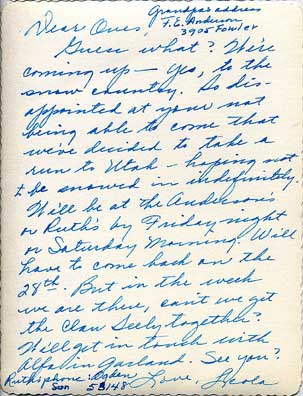 Grandpa's address
Dear Ones, F. E. Anderson
3905 Fowler
Guess what? We're
coming up — Yes, to the
snow country. So dis-
appointed at your not
being able to come that
we've decided to take a
run to Utah — hoping not
to be snowed in indefinitely.
Will be at the Anderson's
or Ruth's by Friday night
or Saturday Morning. Will
have to come back on the
28th. But in the week
we are there, can't we get
the Clan Seely together?
Will get in touch with
Alfa in Garland. See you?
Ruth's phone: Ogden Love, Leola
53148